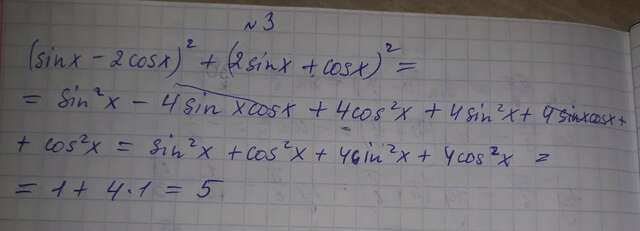 №3
(sinx - 2cosx)² + (2sinx + cosx)² =
= sin²x - 4sin xcosx + 4cos²x + 4sin²x + 4sinxcosx +
+ cos²x = sin²x + cos²x + 4sin²x + 4cos²x =
= 1 + 4·1 = 5